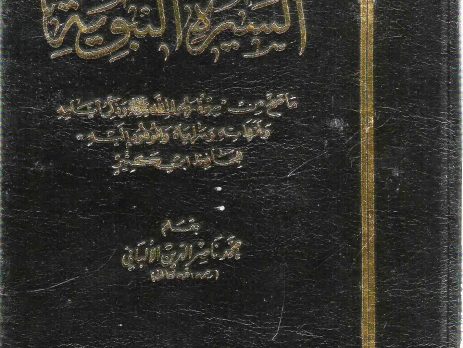 السيرة النبوية
ما صح من سيرة رسول الله ﷺ وذكر أيامه
وغزواته وسراياه والوفود إليه
للحافظ ابن كثير
بقلم
محمد ناصر الدين الألباني
(رحمه الله تعالى)